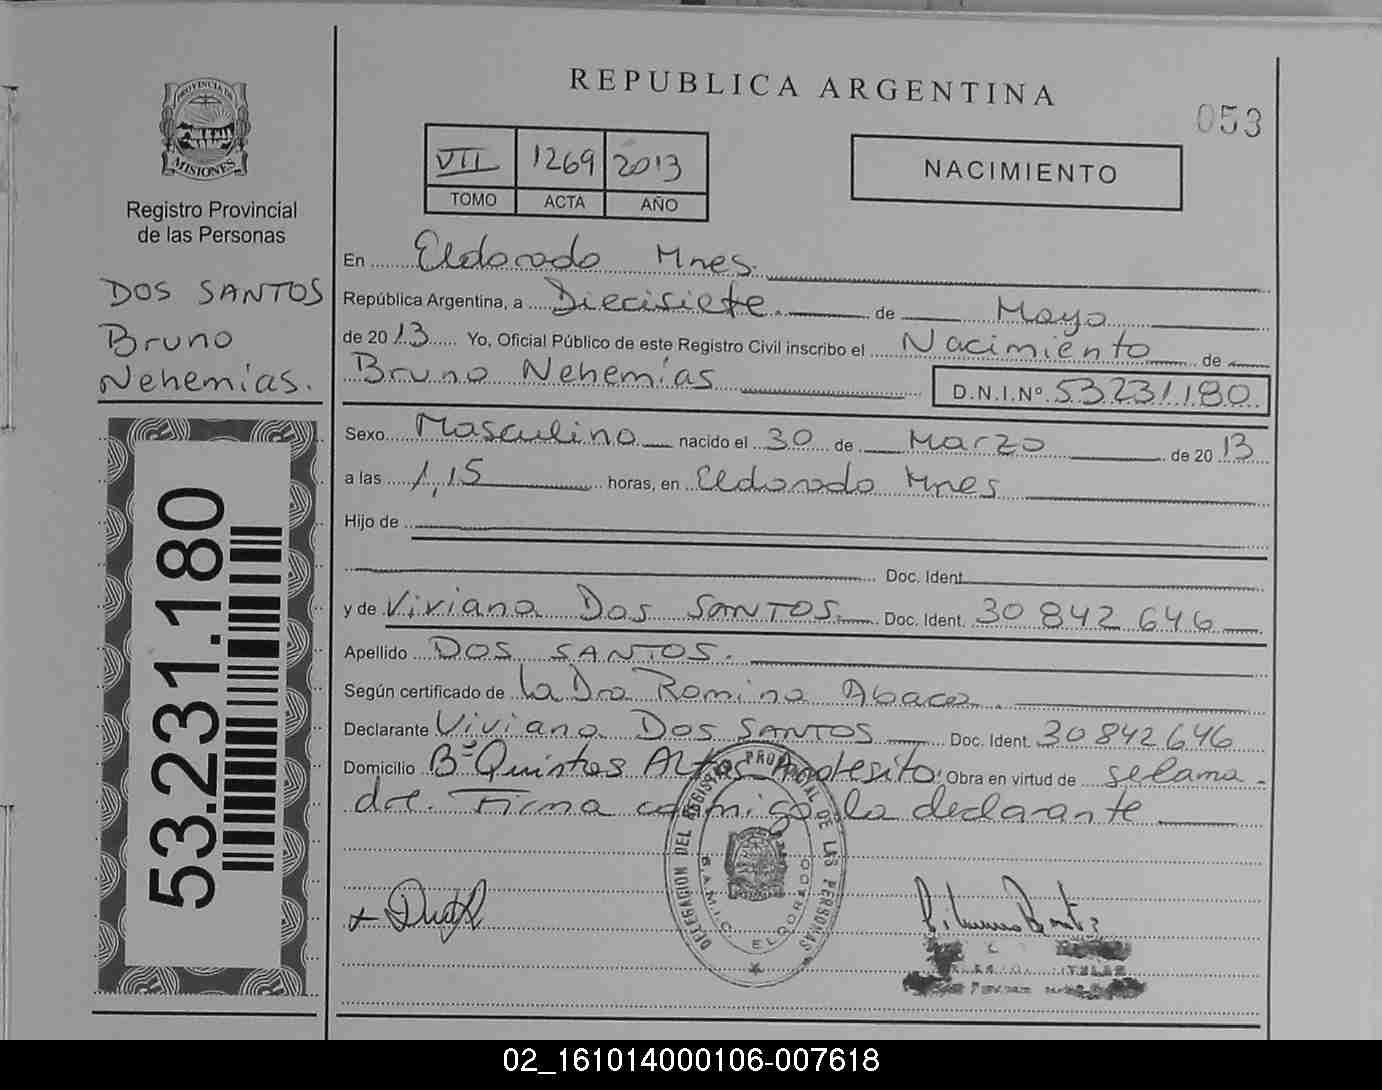 REPUBLICA ARGENTINA
053
PROVINCIA DE
MISIONES
Registro Provincial
de las Personas
DOS SANTOS
Bruno
Nehemías.
53.231.180
VII 1269 2013
TOMO ACTA AÑO
NACIMIENTO
En Eldorado Mnes.
República Argentina, a Diecisiete. de Mayo
de 2013 Yo, Oficial Público de este Registro Civil inscribo el Nacimiento de
Bruno Nehemías D.N.I.Nº 53231180
Sexo Masculino nacido el 30 de Marzo de 2013
a las 1,15 horas, en Eldorado Mnes
Hijo de
Doc. Ident.
y de Viviana Dos SANTOS. Doc. Ident. 30842646
Apellido DOS SANTOS.
Según certificado de la Dra Romina
Declarante Viviana DOS SANTOS Doc. Ident. 30842646
Domicilio Bº Quintas Altos Obra en virtud de ser la ma-
dre. Firma conmigo la declarante
DELEGACION DEL REGISTRO PROVINCIAL DE LAS PERSONAS
S.A.M.I.C. ELDORADO
02_161014000106-007618